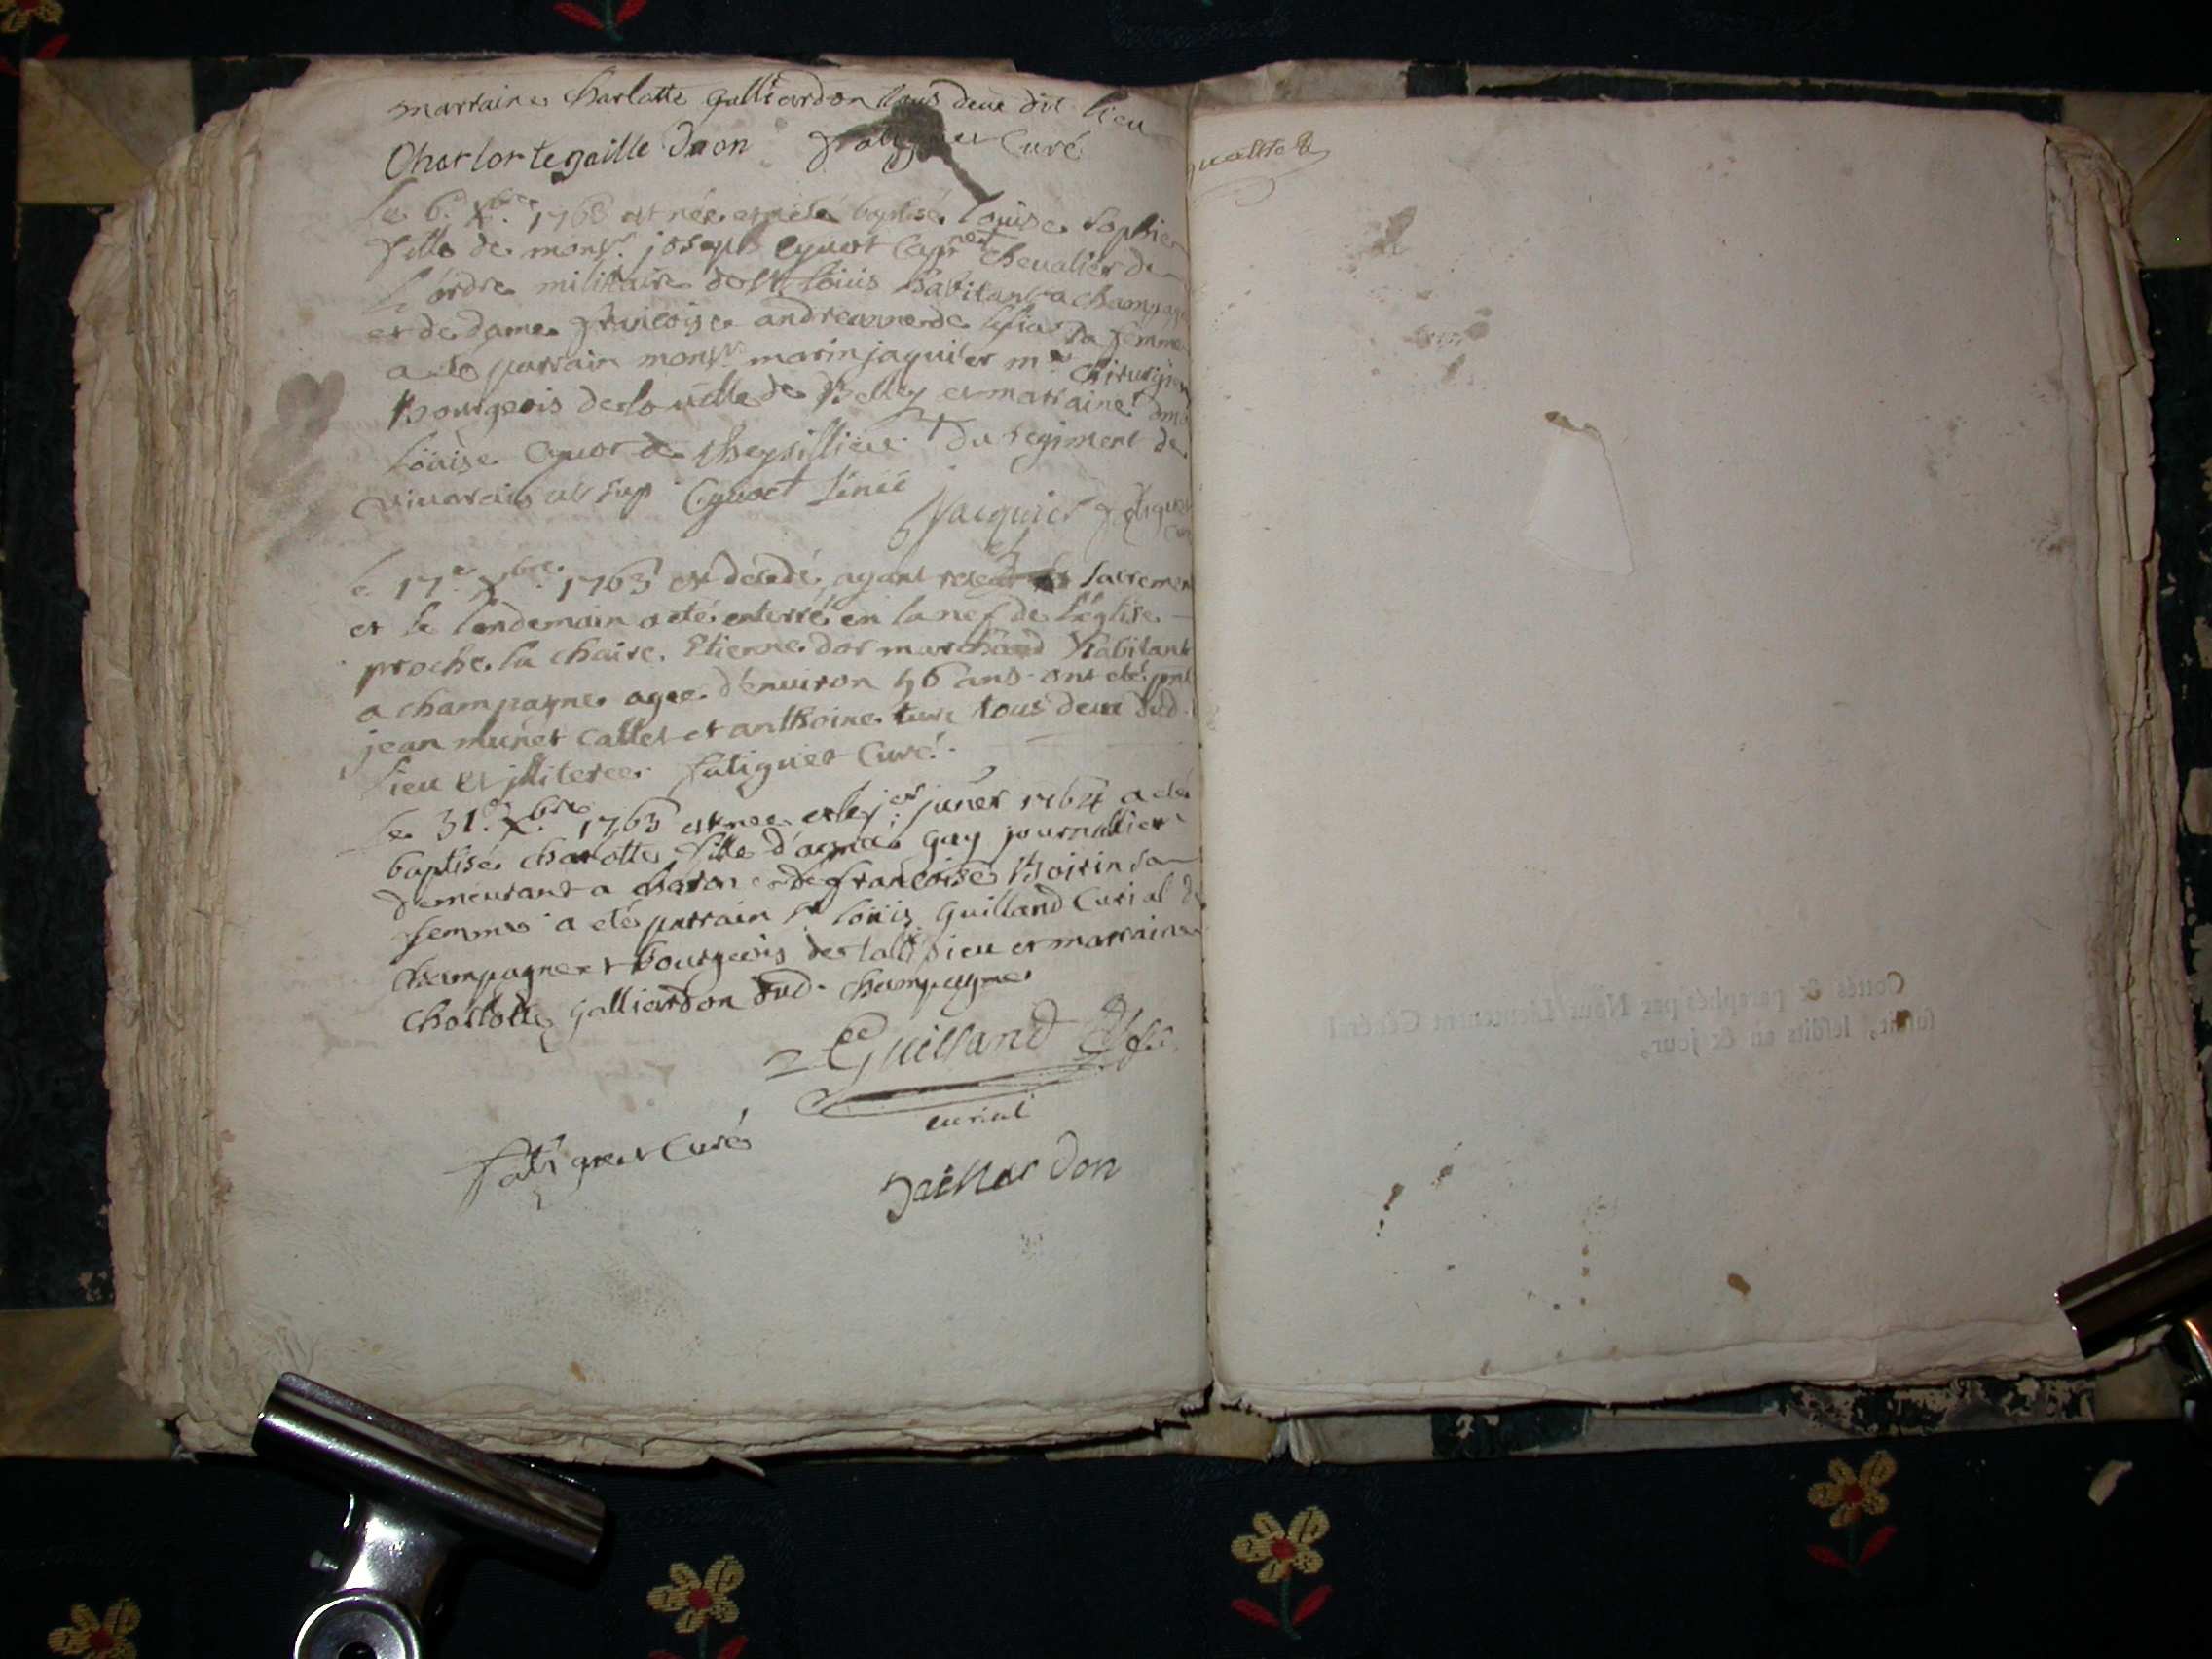 marraine Charlotte Galliardon tous deux dit lieu
Charlorte gaille Daon Curé
Le 6.e Xbre. 1763 est née et a été baptisé Louise Sophie
fille de monsr. joseph Cyvoct Capnet chevalier de
L'ordre militaire de St. Loüis habitant a champag
et de dame françoise sa femme
a été parrain monsr. marin jaquier me. chirurgien
Bourgeois de la ville de Belley et marraine
Loüise de Cheysillieu + du regiment de
vivarais Cyvoct
Jacquier fatiguet
le 17e Xbre. 1763 est décédé, ayant sacremen
et le lendemain a été enterré en la nef de l'église
proche la chaire. Etienne dor marchand habitant
a champagne agée d'environ 46 ans. ont été pnt
jean munet callet et anthoine turc tous deux dud.
lieu et illiterée. fatiguet Curé.
Le 31.e Xbre 1763 est nee et le jer. janer 1764 a été
baptisé charlotte fille d'aymé Gay journallier
demeurant a charon et de françoise Boirin sa
femme a été parrain sr. Loüis Guilland Curial de
champagne et bourgeois de talissieu et marraine
Charlotte Galliardon dud. champagne
Guilland
curial
fatiguet Curé
Gaillardon
Cottés & paraphés par Nous Lieutenant Général
susdit, lesdits an & jour,